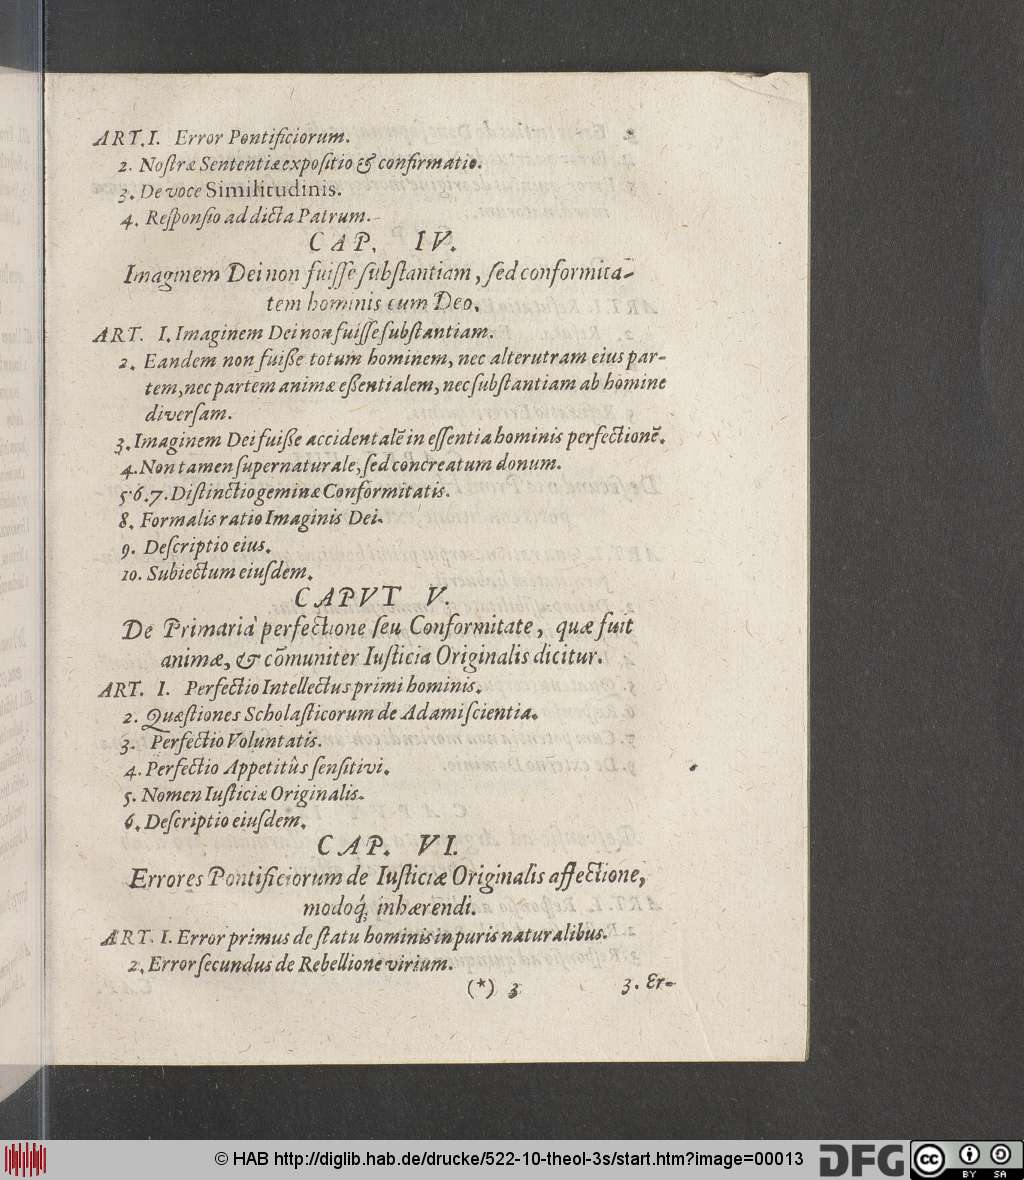 ART. I. Error Pontificiorum.
2. Noſtræ Sententiæ expoſitio & confirmatio.
3. De voce Similitudinis.
4. Reſponſio ad dicta Patrum.
CAP. IV.
Imaginem Dei non fuiſſe ſubſtantiam, ſed conformita-
tem hominis cum Deo.
ART. I. Imaginem Dei non fuiſſe ſubſtantiam.
2. Eandem non fuiße totum hominem, nec alterutram eius par-
tem, nec partem animæ eßentialem, nec ſubſtantiam ab homine
diverſam.
3. Imaginem Dei fuiße accidentalẽ in eſſentia hominis perfectionẽ.
4. Non tamen ſupernaturale, ſed concreatum donum.
5. 6. 7. Diſtinctio geminæ Conformitatis.
8. Formalis ratio Imaginis Dei.
9. Deſcriptio eius.
10. Subiectum eiuſdem.
CAPVT V.
De Primariâ perfectione ſeu Conformitate, quæ fuit
animæ, & cõmuniter Iuſticia Originalis dicitur.
ART. I. Perfectio Intellectus primi hominis.
2. Quæſtiones Scholaſticorum de Adami ſcientia.
3. Perfectio Voluntatis.
4. Perfectio Appetitûs ſenſitivi.
5. Nomen Iuſticiæ Originalis.
6. Deſcriptio eiuſdem.
CAP. VI.
Errores Pontificiorum de Iuſticiæ Originalis affectione,
modoq́; inhærendi.
ART. I. Error primus de ſtatu hominis in puris naturalibus.
2. Error ſecundus de Rebellione virium.
(*) 3 3. Er-
© HAB http://diglib.hab.de/drucke/522-10-theol-3s/start.htm?image=00013
DFG
cc BY SA